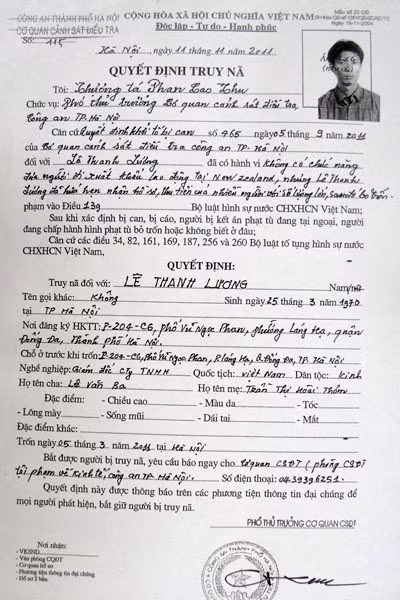 CÔNG AN THÀNH PHỐ HÀ NỘI
CƠ QUAN CẢNH SÁT ĐIỀU TRA
Số: 115
CỘNG HÒA XÃ HỘI CHỦ NGHĨA VIỆT NAM
Độc lập - Tự do - Hạnh phúc
Mẫu số 25
18-11-2004
Hà Nội, ngày 11 tháng 11 năm 2011
QUYẾT ĐỊNH TRUY NÃ
Tôi: Thượng tá Phan
Chức vụ: Phó thủ trưởng Cơ quan cảnh sát điều tra,
Công an TP. Hà Nội
Căn cứ Quyết định khởi tố bị can số 465 ngày 05 tháng 9 năm 2011
của Cơ quan cảnh sát điều tra công an TP. Hà Nội
đối với Lê Thanh Lương đã có hành vi không có chức năng
đưa người đi xuất khẩu lao động tại New zealand, nhưng Lê Thanh
Lương đã hứa hẹn nhận hồ sơ, thu tiền của nhiều người với số lượng lớn, sau đó bỏ trốn.
phạm vào Điều 139 Bộ luật hình sự nước CHXHCN Việt Nam;
Sau khi xác định bị can, bị cáo, người bị kết án phạt tù đang tại ngoại, người
đang chấp hành hình phạt tù bỏ trốn hoặc không biết ở đâu;
Căn cứ các điều 34, 82, 161, 169, 187, 256 và 260 Bộ luật tố tụng hình sự nước
CHXHCN Việt Nam,
QUYẾT ĐỊNH:
Truy nã đối với: LÊ THANH LƯƠNG Nam/nữ
Tên gọi khác: Không Sinh ngày 25 tháng 3 năm 1970
tại TP Hà Nội
Nơi đăng ký HKTT: P-204-C6, phố Vũ Ngọc Phan, phường Láng Hạ, quận
Đống Đa, Thành phố Hà Nội.
Chỗ ở trước khi trốn: P-204-C6, Phố Vũ Ngọc Phan, P. Láng Hạ, Q. Đống Đa, TP. Hà Nội
Nghề nghiệp: Giám đốc Cty TNHH Quốc tịch: Việt Nam Dân tộc: Kinh
Họ tên cha: Lê Văn Ba Họ tên mẹ: Trần Thị Hoài Thơm
Đặc điểm: - Chiều cao - Màu da - Tóc
- Lông mày - Sống mũi - Dái tai - Mắt
Đặc điểm khác:
Trốn ngày 05 tháng 3 năm 2011 tại Hà Nội
Bắt được người bị truy nã, yêu cầu báo ngay cho Cơ quan CSĐT (phòng CSĐT
tội phạm về Kinh tế, công an TP. Hà Nội. Số điện thoại: 04.39396251.
Quyết định này được thông báo trên các phương tiện thông tin đại chúng để
mọi người phát hiện, bắt giữ người bị truy nã.
PHÓ THỦ TRƯỞNG CƠ QUAN CSĐT
Nơi nhận:
- VKSND
- Văn phòng CQĐT
- Cơ quan hồ sơ
- Phương tiện thông tin đại chúng
- Hồ sơ 2 bản.